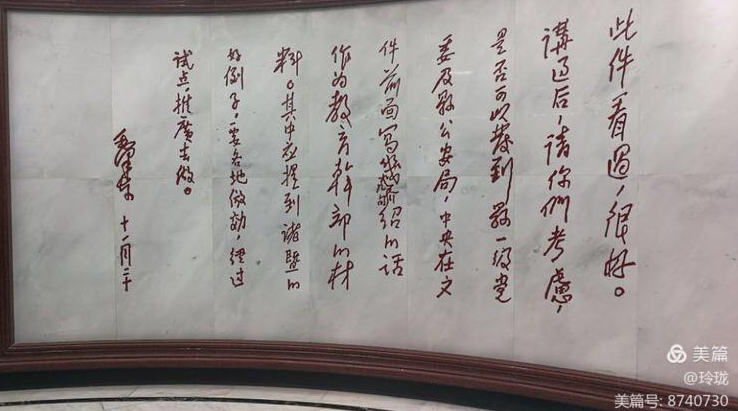 此件看過,很好。
講过后,請你們考慮,
是否可以發到縣一级党
委及縣公安局,中央在文
件前面寫幾句介紹的話
作为教育幹部的材
料。其中应提到諸暨的
好例子,要各地仿効,經过
试点,推廣去做。
毛泽东 十一月二十
美篇
@玲珑
美篇号: 8740730